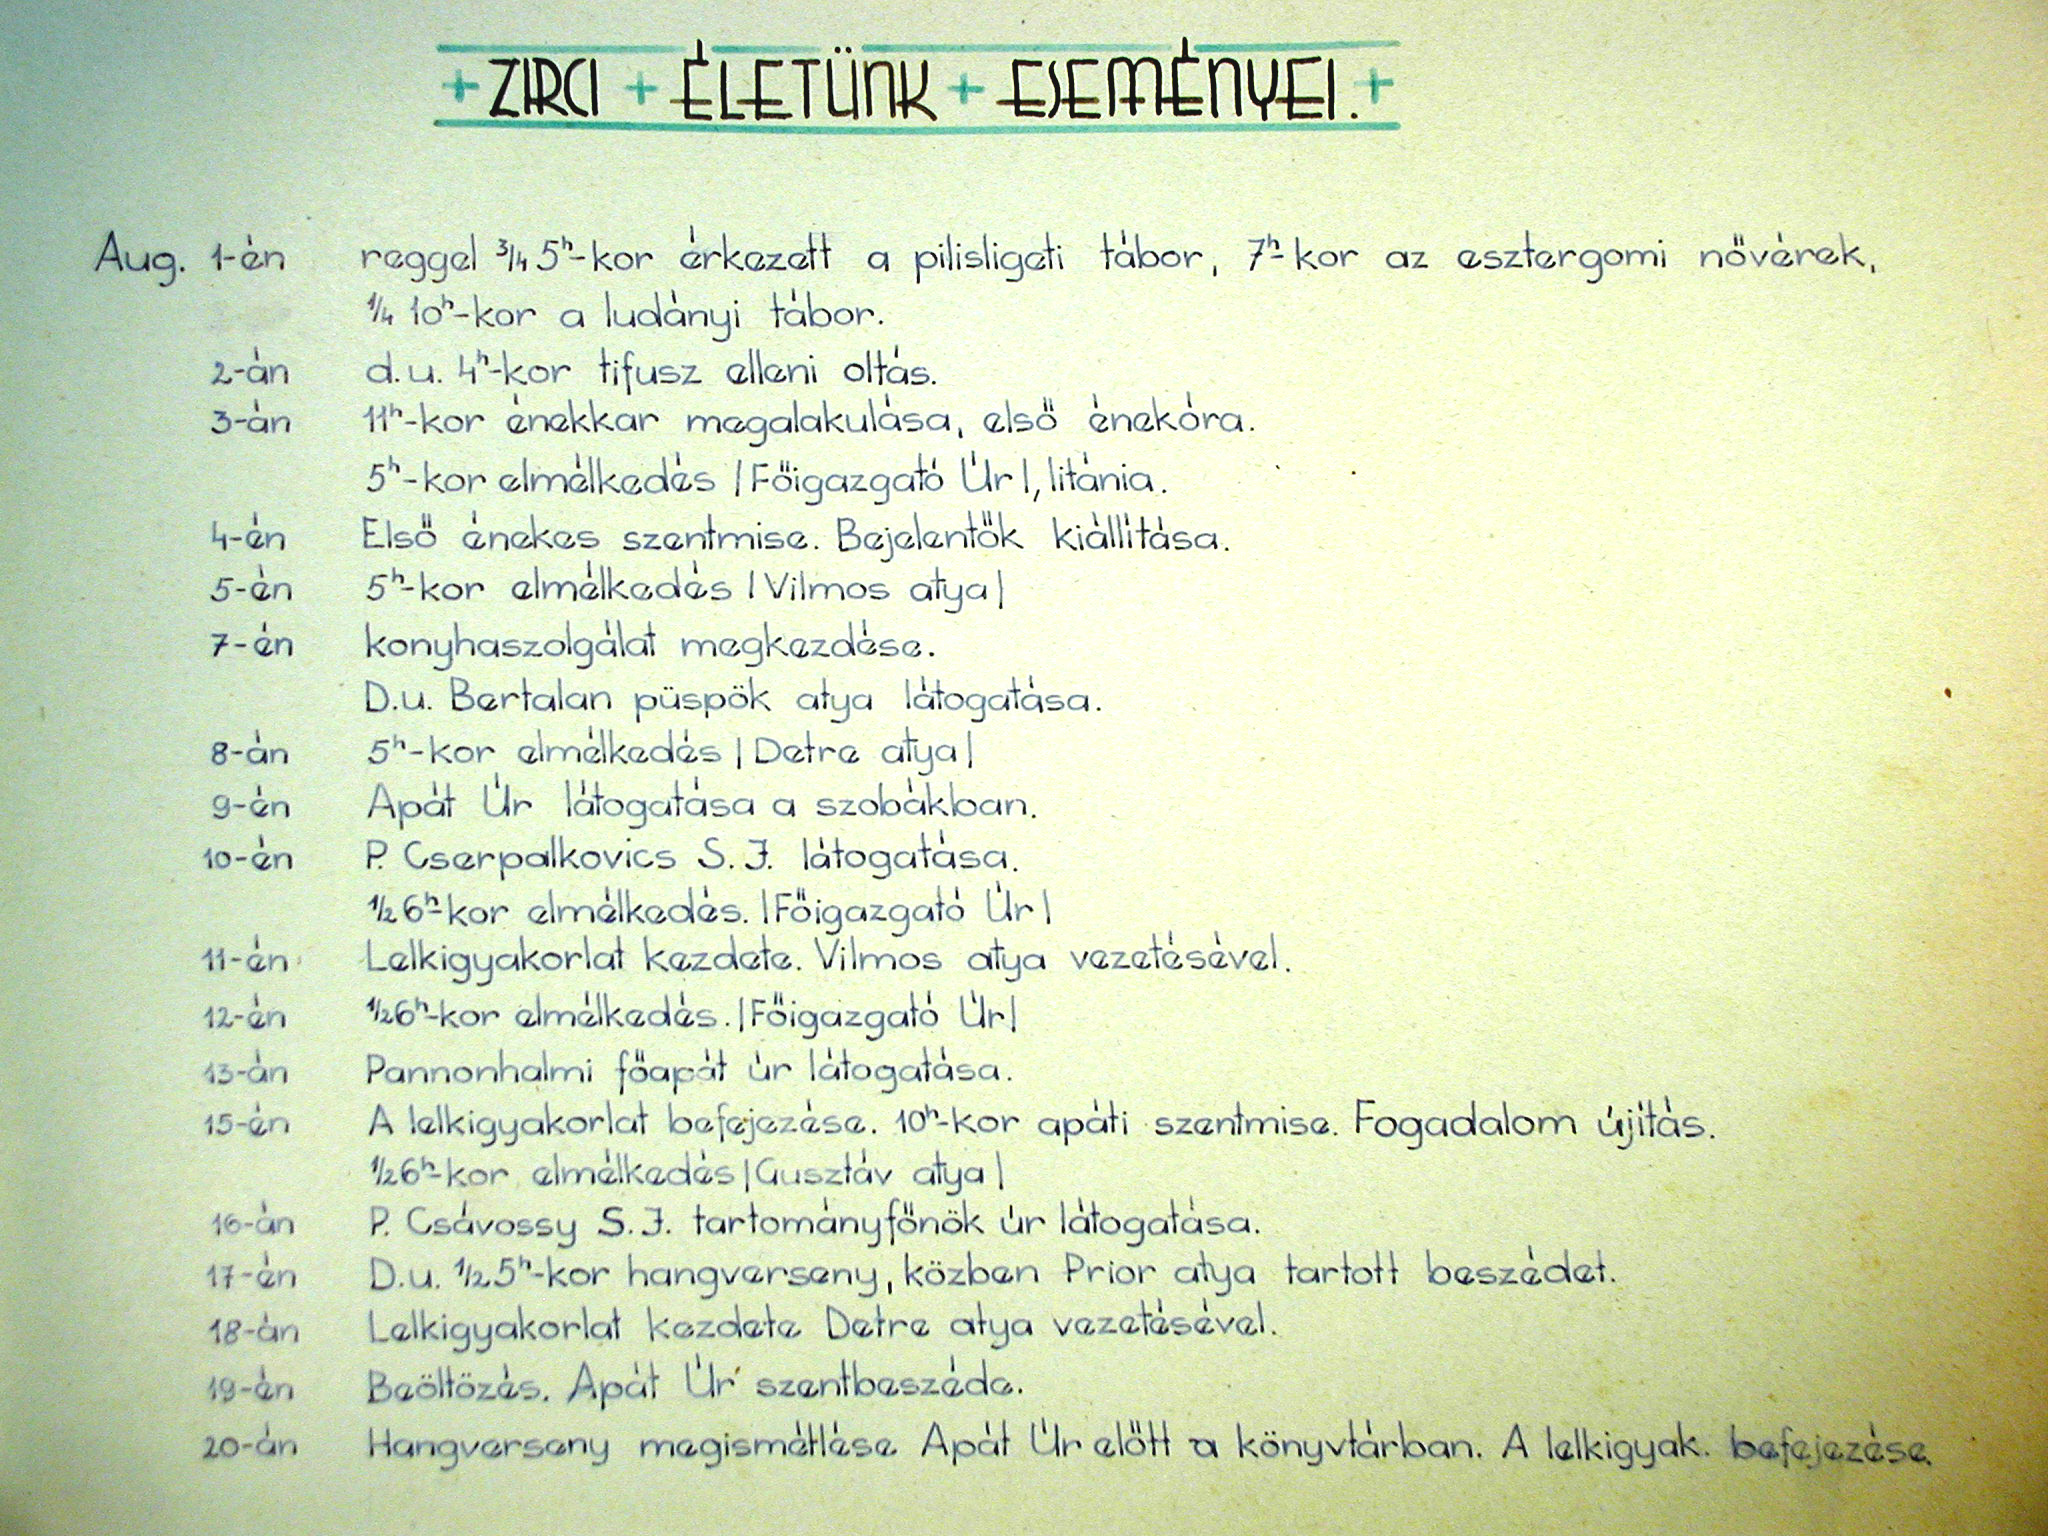 + ZIRCI + ÉLETÜNK + ESEMÉNYEI. +
Aug. 1-én reggel ¾ 5ʰ-kor érkezett a pilisligeti tábor, 7ʰ-kor az esztergomi nővérek,
¼ 10ʰ-kor a ludányi tábor.
2-án d.u. 4ʰ-kor tifusz elleni oltás.
3-án 11ʰ-kor énekkar megalakulása, első énekóra.
5ʰ-kor elmélkedés |Főigazgató Úr|, litánia.
4-én Első énekes szentmise. Bejelentők kiállítása.
5-én 5ʰ-kor elmélkedés |Vilmos atya|
7-én konyhaszolgálat megkezdése.
D.u. Bertalan püspök atya látogatása.
8-án 5ʰ-kor elmélkedés |Detre atya|
9-én Apát Úr látogatása a szobákban.
10-én P. Cserpalkovics S. J. látogatása.
½ 6ʰ-kor elmélkedés. |Főigazgató Úr|
11-én Lelkigyakorlat kezdete. Vilmos atya vezetésével.
12-én ½ 6ʰ-kor elmélkedés. |Főigazgató Úr|
13-án Pannonhalmi főapát úr látogatása.
15-én A lelkigyakorlat befejezése. 10ʰ-kor apáti szentmise. Fogadalom újítás.
½ 6ʰ-kor elmélkedés |Gusztáv atya|
16-án P. Csávossy S. J. tartományfőnök úr látogatása.
17-én D.u. ½ 5ʰ-kor hangverseny, közben Prior atya tartott beszédet.
18-án Lelkigyakorlat kezdete Detre atya vezetésével.
19-én Beöltözés. Apát Úr szentbeszéde.
20-án Hangverseny megismétlése Apát Úr előtt a könyvtárban. A lelkigyak. befejezése.